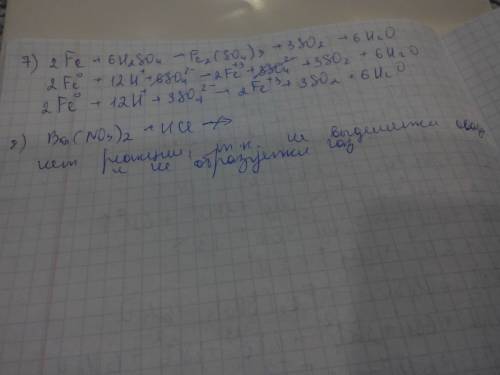 7) 2Fe + 6H₂SO₄ — Fe₂(SO₄)₃ + 3SO₂ + 6H₂O
2Fe⁰ + 12H⁺ + 6SO₄²⁻ — 2Fe⁺³ + 3SO₄²⁻ + 3SO₂ + 6H₂O
2Fe⁰ + 12H⁺ + 3SO₄²⁻ → 2Fe⁺³ + 3SO₂ + 6H₂O
8) Ba(NO₃)₂ + HCl ↛
нет реакции, т.к. не выделяется
и не образуется газ